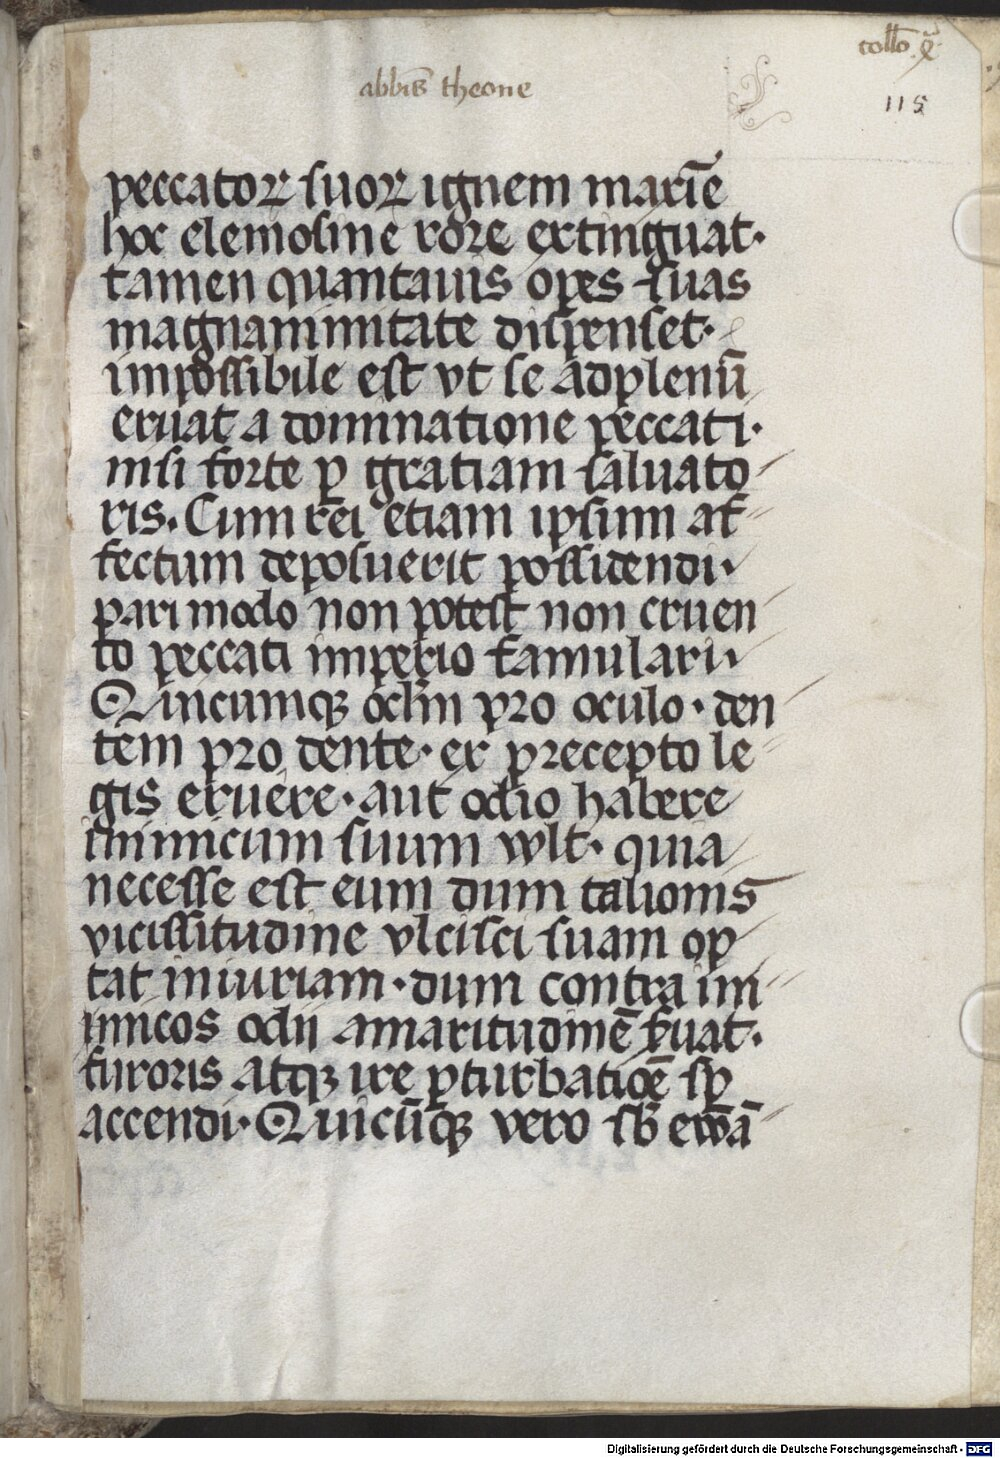 collo. x̃
abbīs theone
115
peccatoꝝ suoꝝ ignem maxīe
hoc elemosine rore extinguat·
tamen quantauis opes suas
magnanimitate dispenset·
impossibile est vt se adplenū
exuat a dominatione peccati·
nisi forte ꝑ gratiam saluato
ris. Cum rei etiam ipsum af
fectum deposuerit possidendi·
pari modo non potest non cruen
to peccati imperio famulari·
Quicumqꝫ oclm pro oculo· den
tem pro dente· ex precepto le
gis eruere· aut odio habere
inimicum suum wlt· quia
necesse est eum dum talionis
vicissitudine vlcisci suam op
tat iniuriam· dum contra ini
micos odii amaritudinē ẜuat·
furoris atqꝫ ire ꝑturbatiōe sꝑ
accendi· Quicūqꝫ vero sb ewā
Digitalisierung gefördert durch die Deutsche Forschungsgemeinschaft · DFG